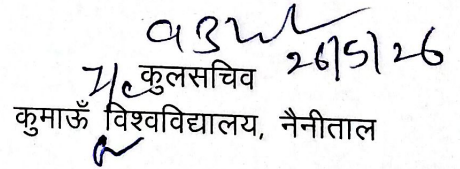 26/5/26
कुलसचिव
कुमाऊँ विश्वविद्यालय, नैनीताल